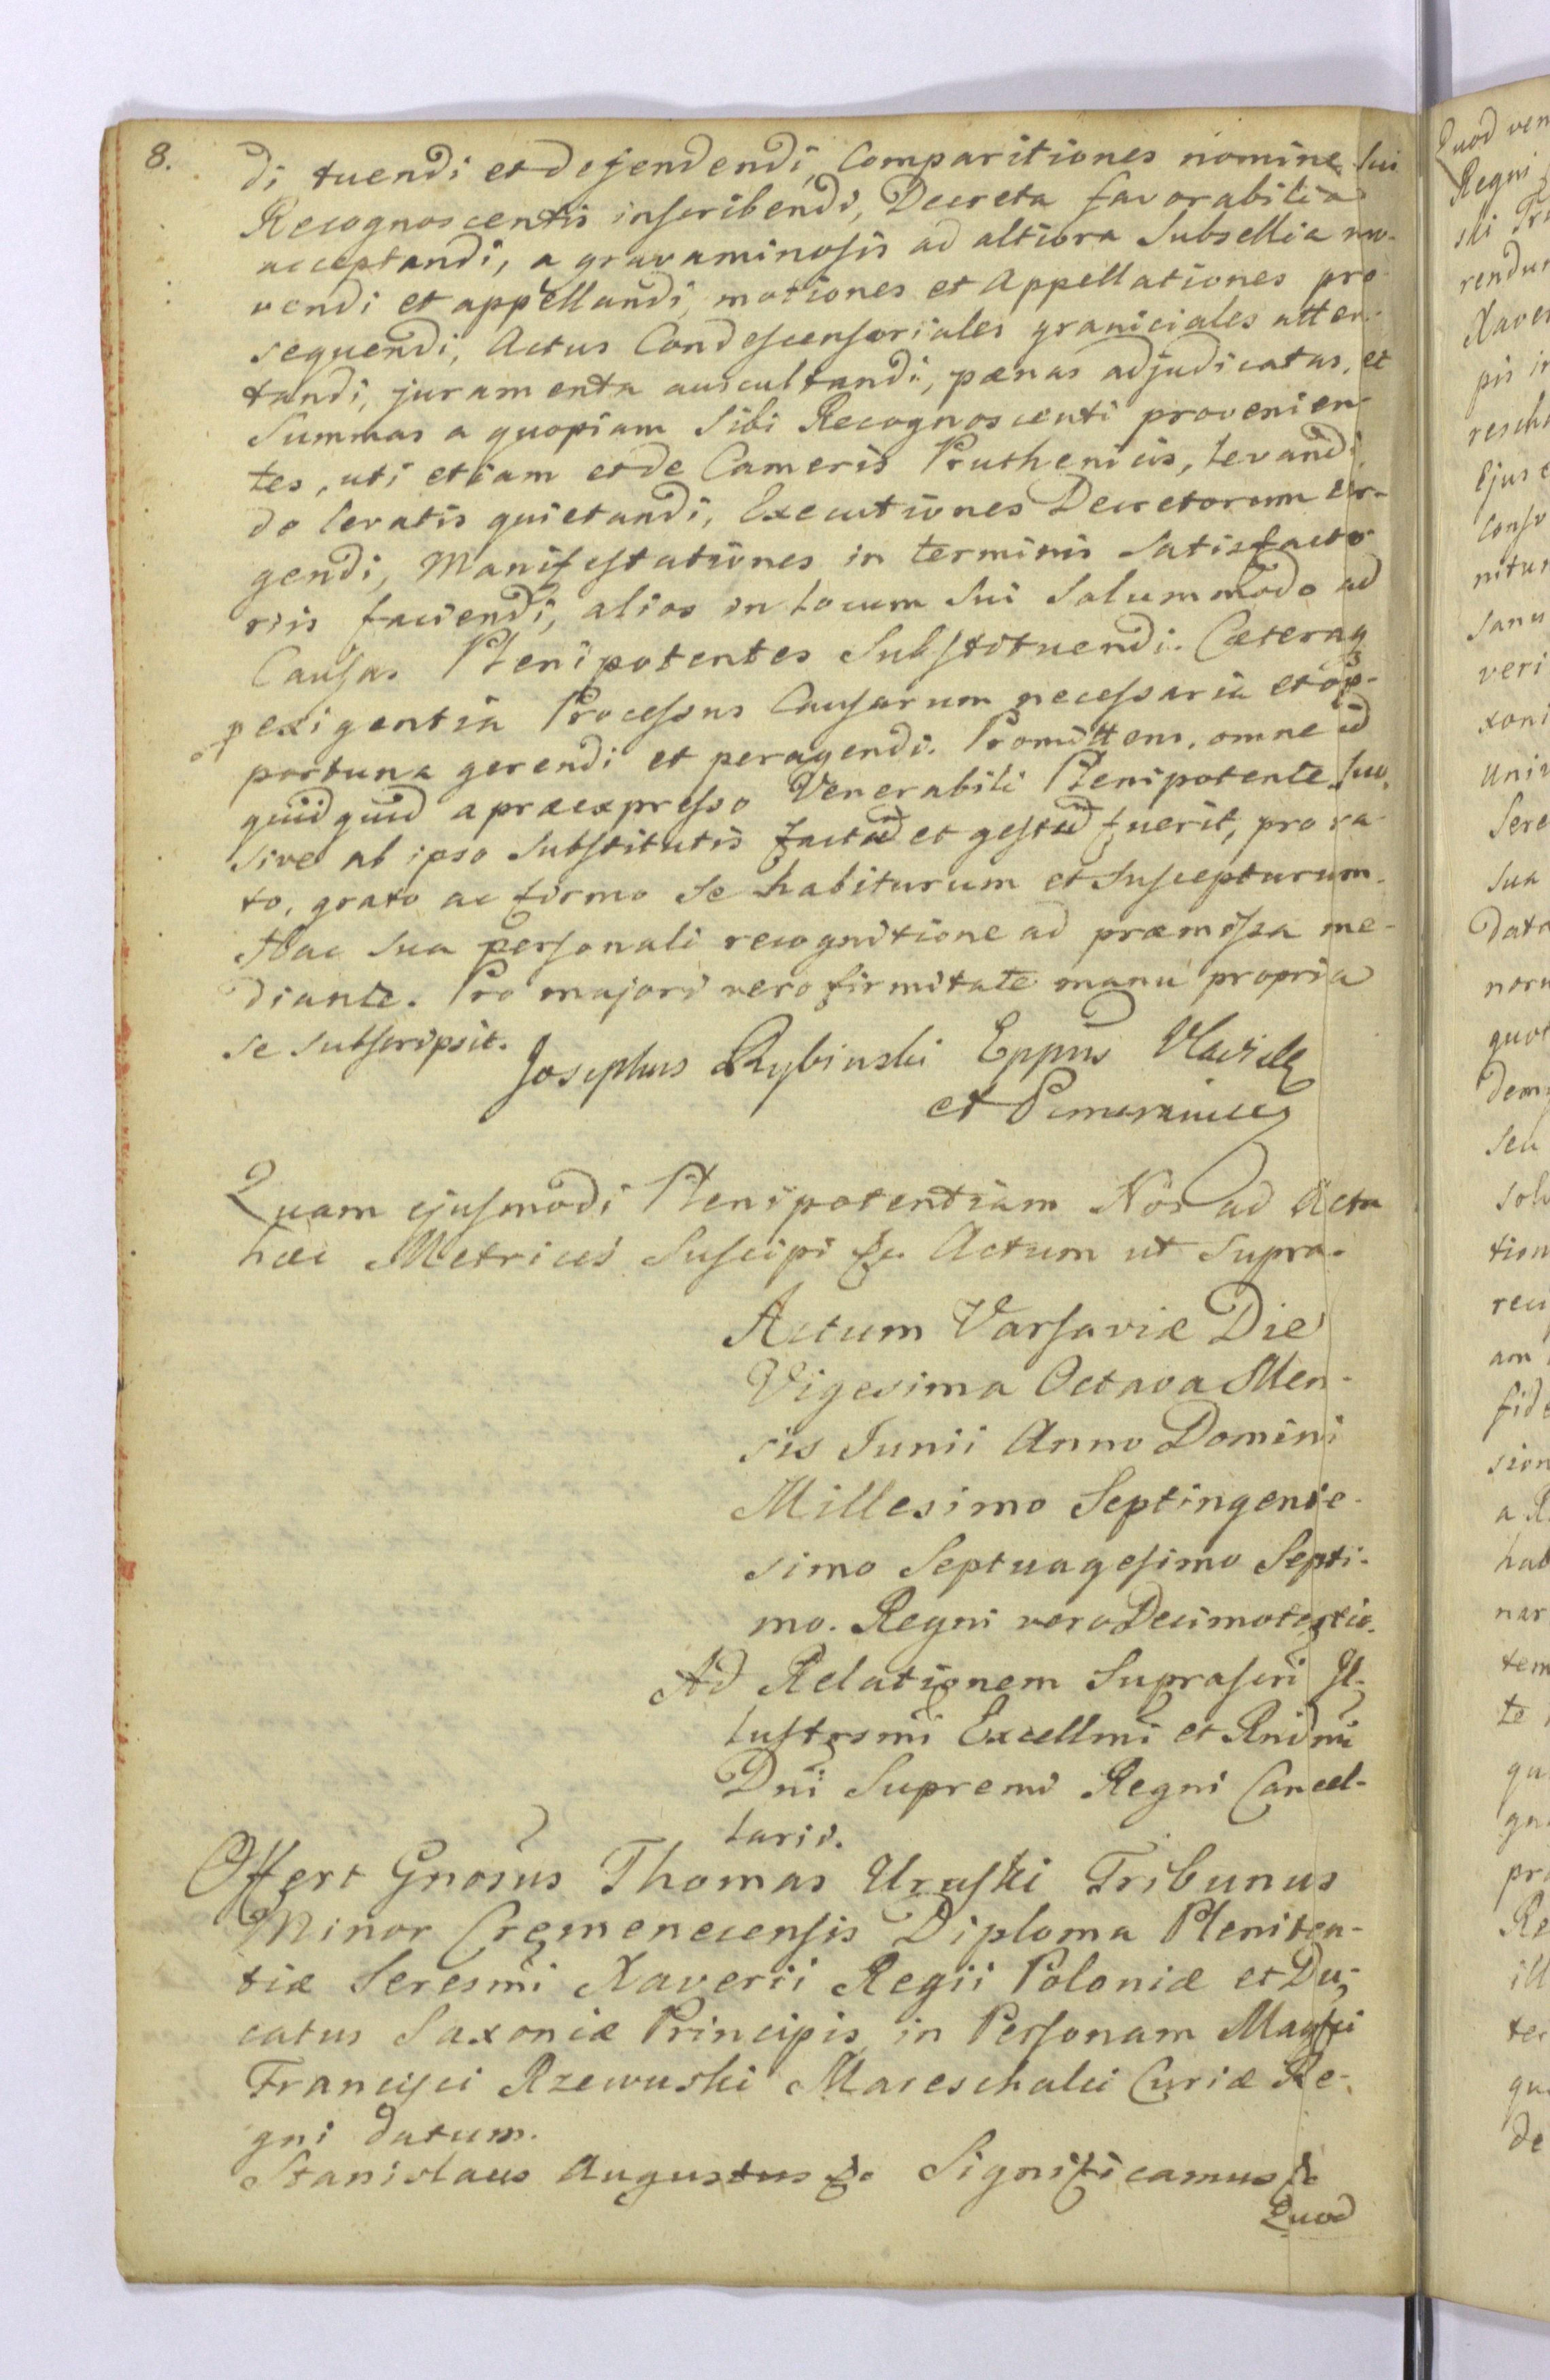 8.
di tuendi et defendendi, Comparitiones nomine Sui
Recognoscentis inscribendi, Decreta favorabilia
acceptandi, a gravaminosis ad altiora Subsellia mo-
vendi et appellandi, motiones et Appellationes pro-
sequendi, Actus Condescensoriales graniciales atten-
tandi, juramenta auscultandi, pænas adjudicatas, et
Summas a quopiam Sibi Recognoscenti provenien-
tes, uti etiam et de Cameris Pruthenicis, levandi
de levatis quietandi, Executiones Decretorum
gendi, Manifestationes in terminis Satisfacto-
riis faciendi, alios in locum Sui Solummodo ad
Causas Plenipotentes Substituendi. Cæteraq
exigentia Processus Causarum necessaria et op-
portuna gerendi et peragendi. Promittens, omne id
quidquid a præexpresso Venerabili Plenipotente Suo,
sive ab ipso Substitutis factū et gestū fuerit, pro ra-
to, grato ac firmo Se habiturum et Suscepturum.
Hac Sua personali recognitione ad præmissa me-
diante. Pro majori vero firmitate manu propria
se Subscripsit.
Josephus Rybinski Eppus
et
Quam ejusmodi Plenipotentiam Nos ad Acta
hæc Metrices Suscipi &c. Actum ut Supra.
Actum Varsaviæ Die
Vigesima Octava Men-
sis Junii Anno Domini
Millesimo Septingente-
simo Septuagesimo Septi-
mo. Regni vero Decimotertio.
Ad Relationem Suprascri Il-
lustrsmi Excellmi et Rndmi
Dni Supremi Regni Cancel-
larii.
Offert Gnosus Thomas Uruski Tribunus
Minor Cremenecensis Diploma Pleniten-
tiæ Seresmi Xaverii Regii Poloniæ et Du-
catus Saxoniæ Principis, in Personam Magfci
Francisci Rzewuski Mareschalci Curiæ Re-
gni datum.
Stanislaus Augustus &c. Significamus &c
Quod